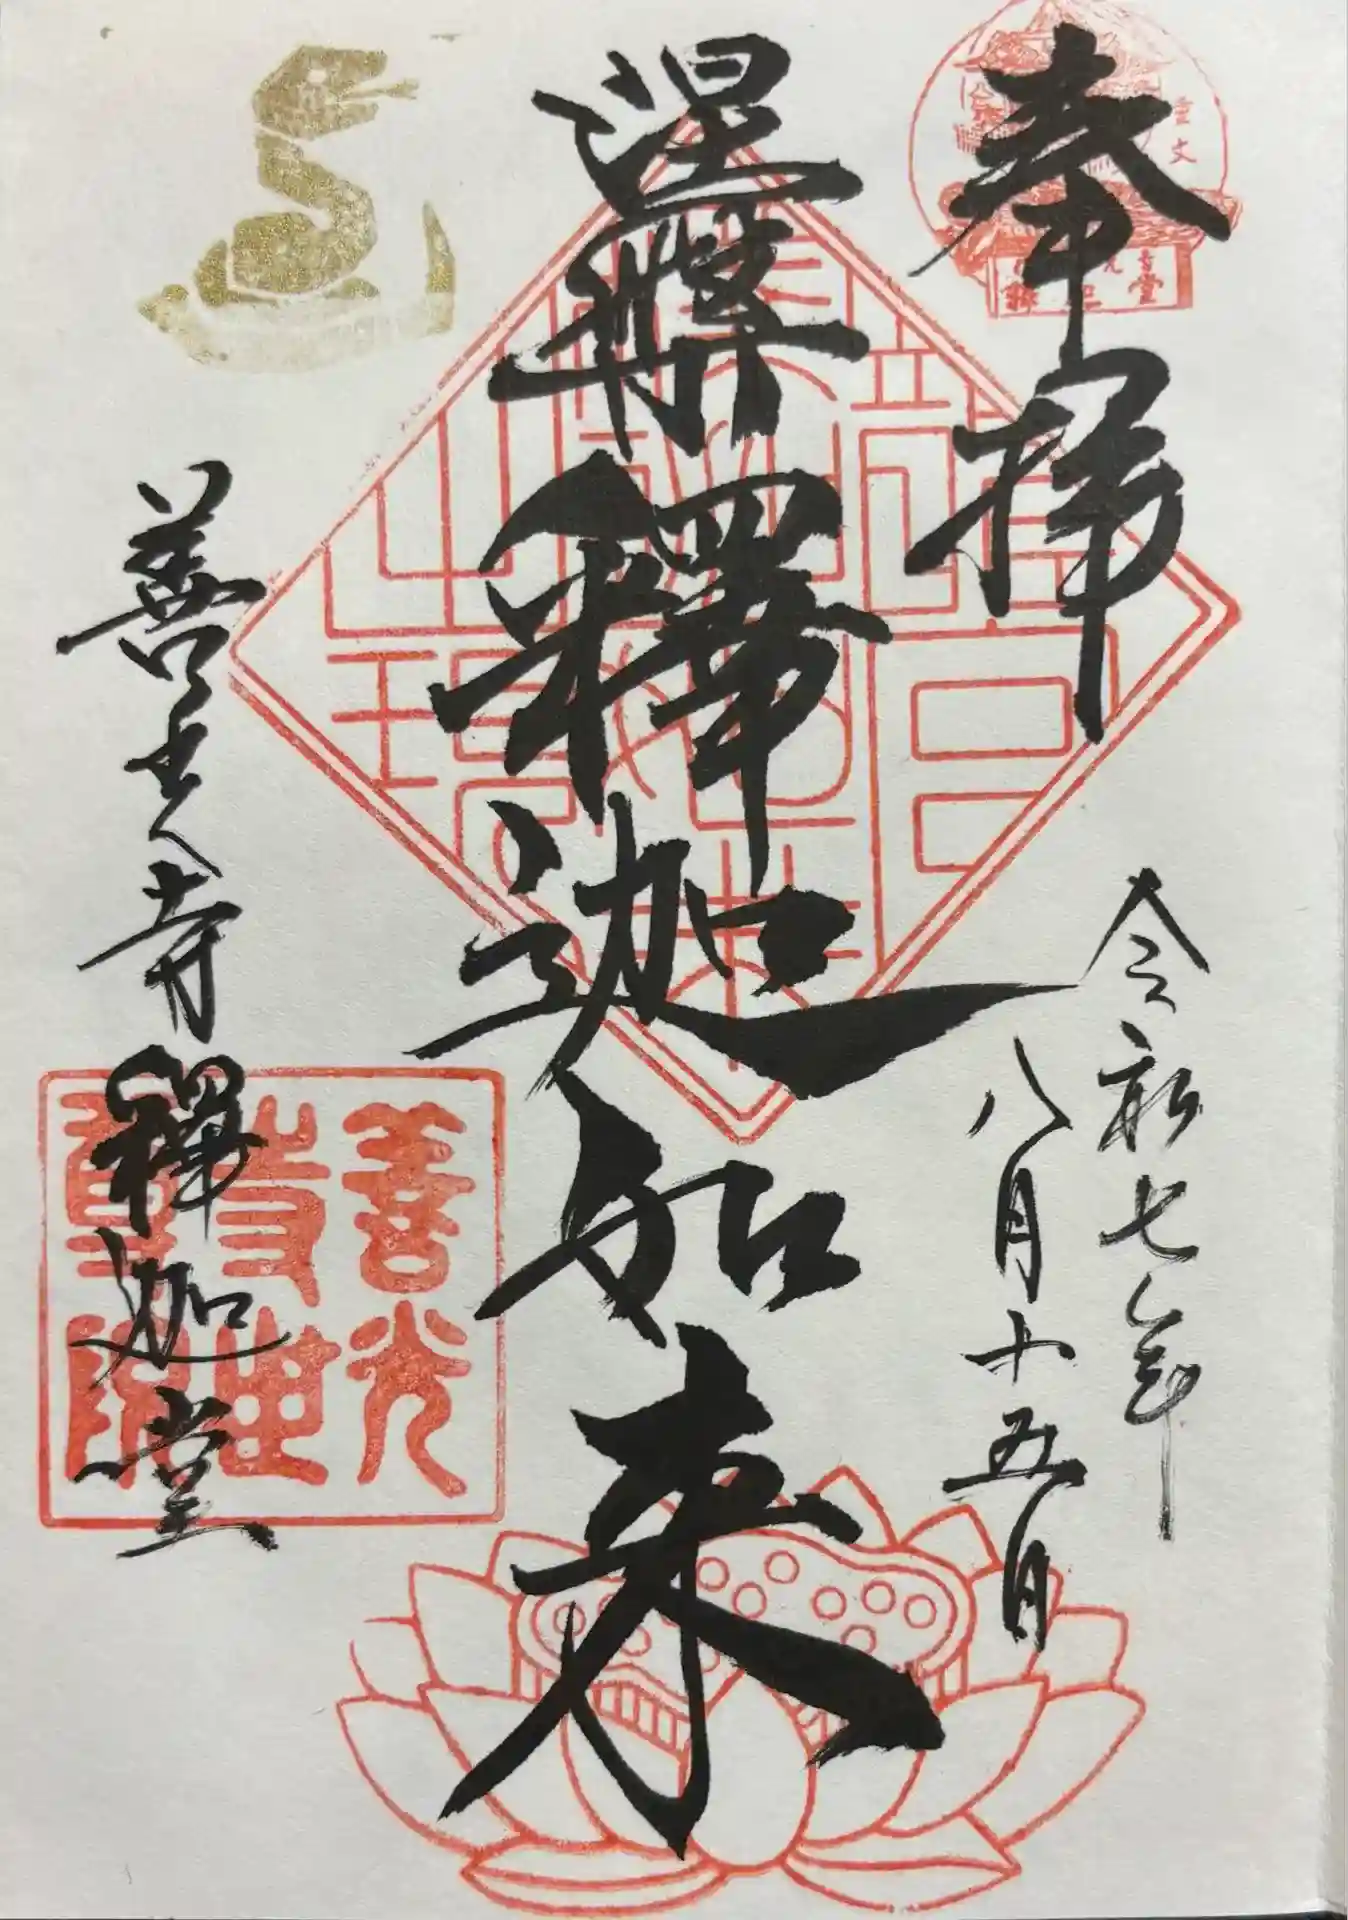 奉拝
令和七年
八月十五日
涅槃釋迦如来
善光寺釋迦堂
善光
寺世
尊院